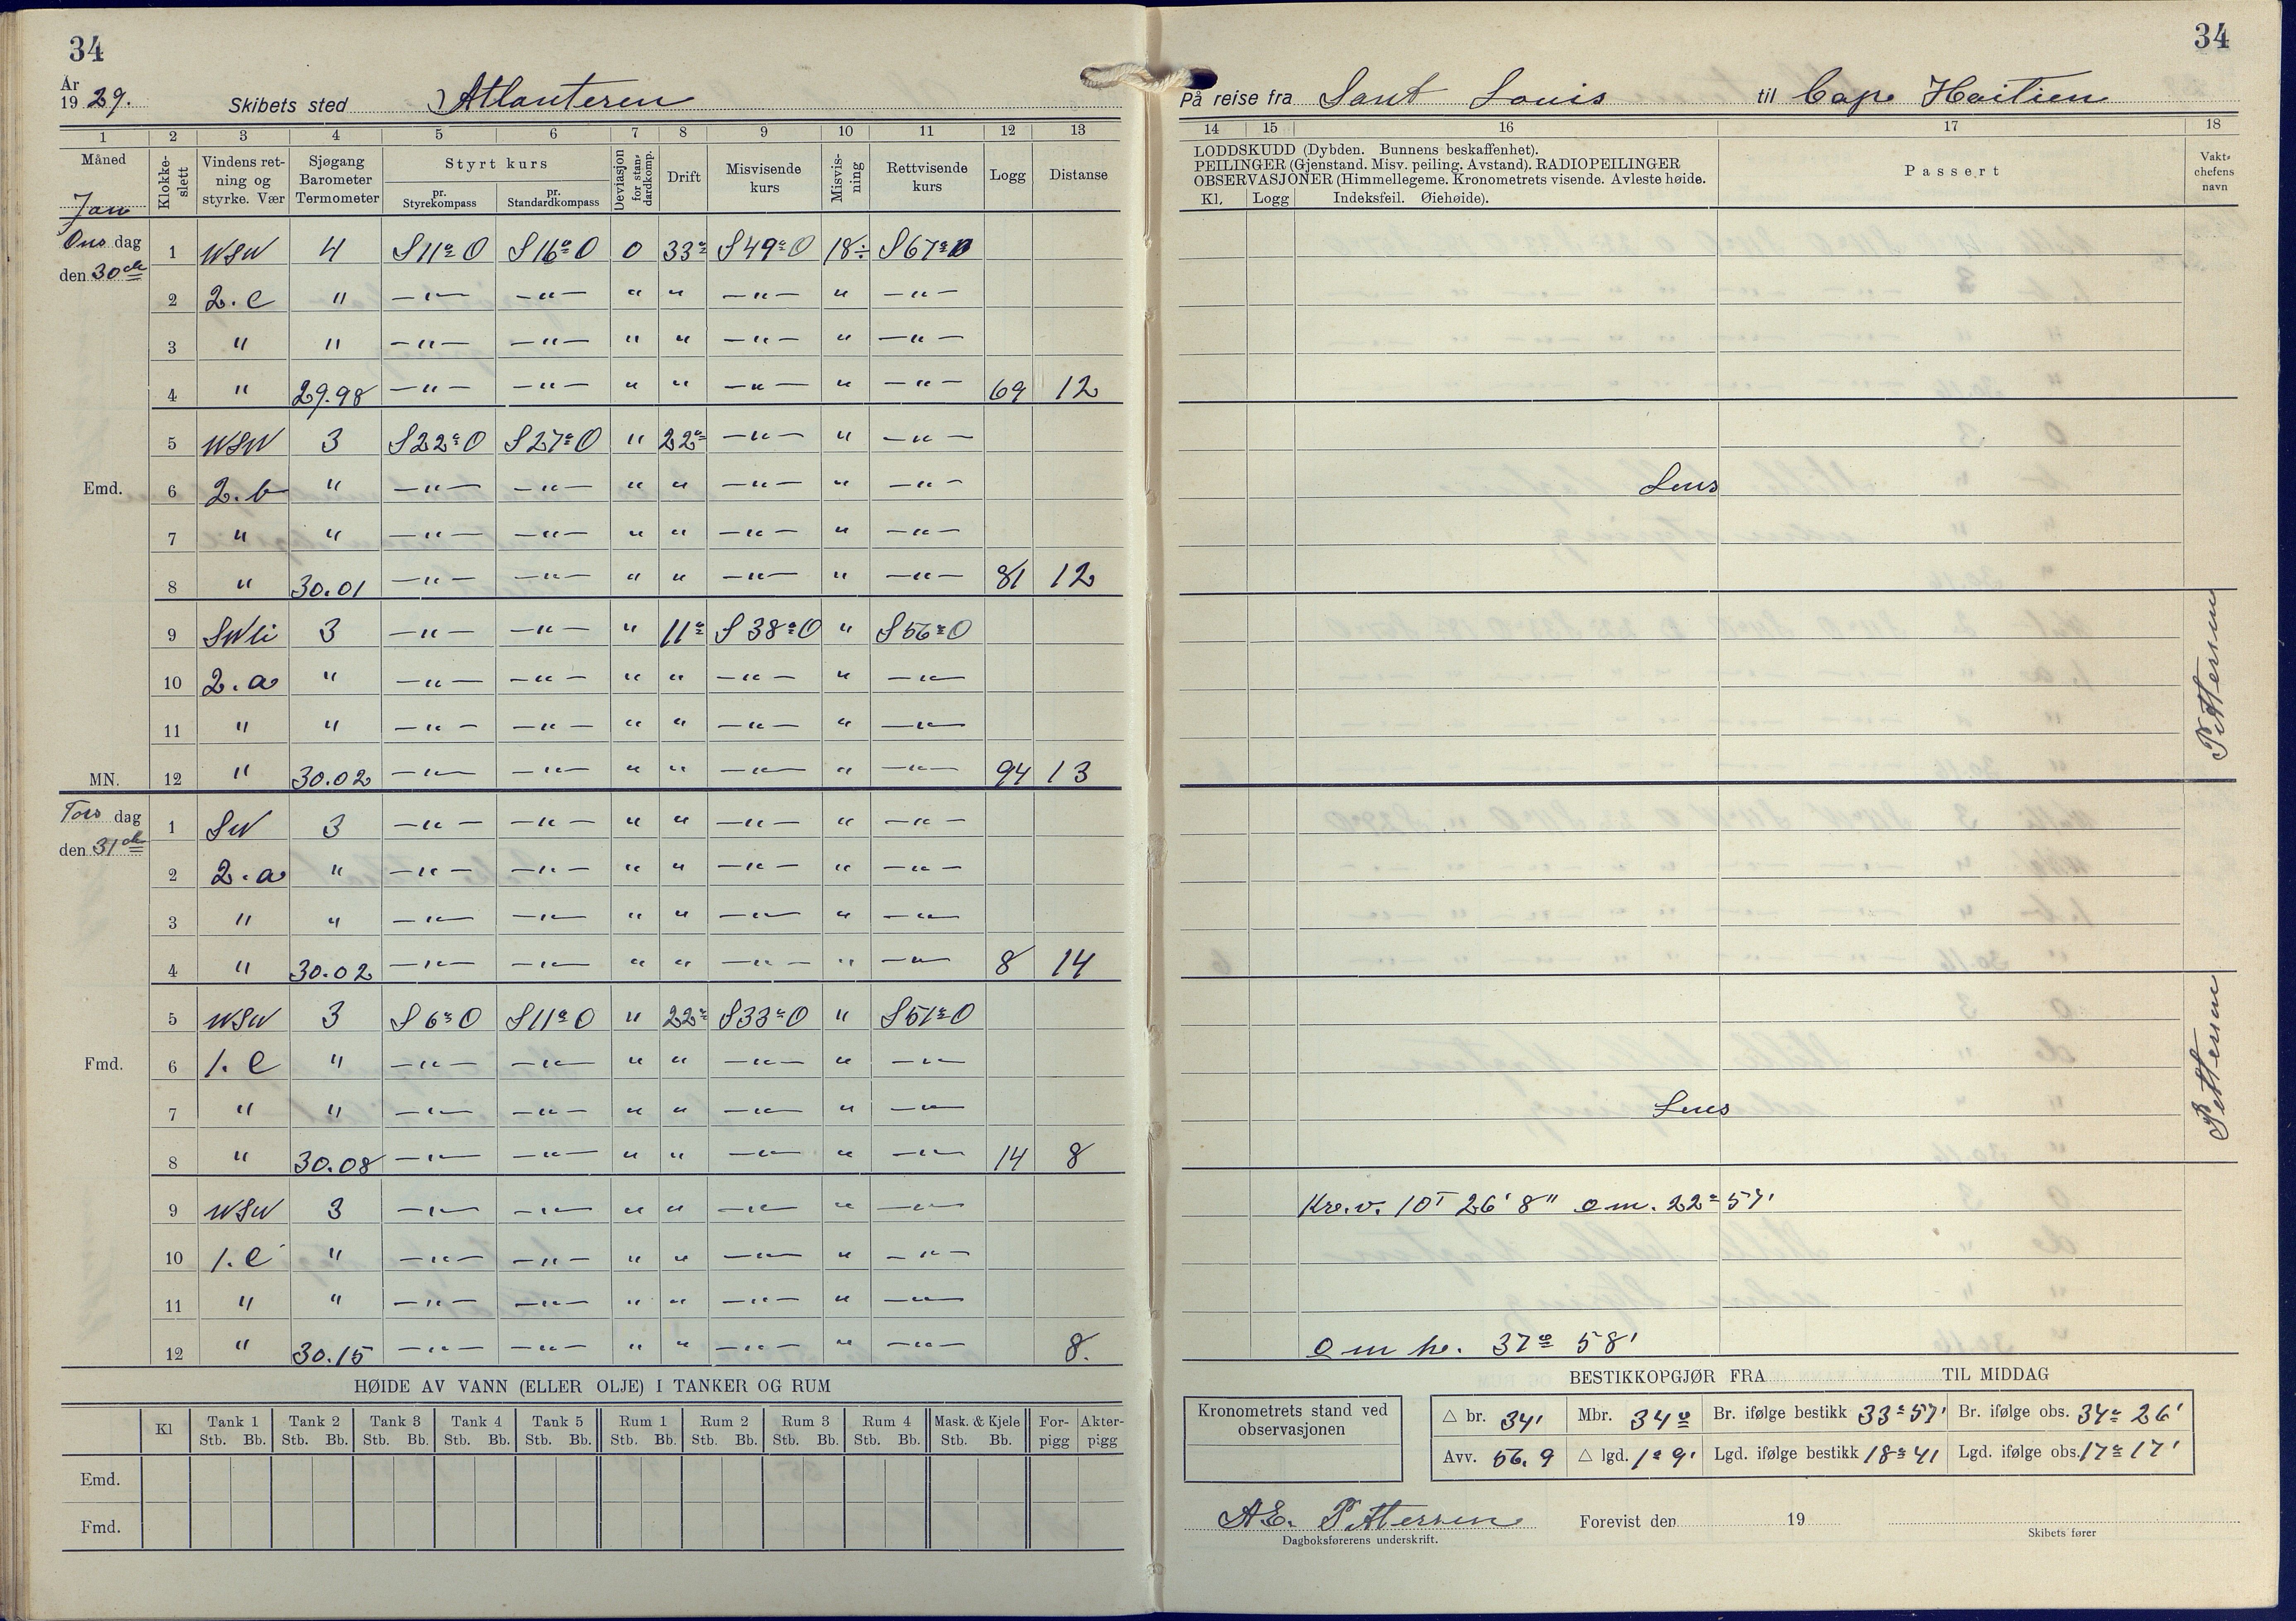 34
År 1929. Skibets sted Atlanteren
1 2 3 4 5 6 7 8 9 10 11 12 13
Måned Jan
Klokkeslett
Vindens retning og styrke. Vær
Sjøgang Barometer Termometer
Styrt kurs
pr. Styrekompass
pr. Standardkompass
Deviasjon for standardkomp.
Drift
Misvisende kurs
Misvisning
Rettvisende kurs
Logg
Distanse
Ons dag den 30de
1 WSW 4 S11°O S16°O 0 33° S49°O 18÷ S67°O
2 2.c " —"— —"— " " —"— " —"—
3 " " —"— —"— " " —"— " —"—
4 " 29.98 —"— —"— " " —"— " —"— 69 12
5 WSW 3 S22°O S27°O " 22° —"— " —"—
Emd. 6 2.b " —"— —"— " " —"— " —"—
7 " " —"— —"— " " —"— " —"—
8 " 30.01 —"— —"— " " —"— " —"— 81 12
9 SWli 3 —"— —"— " 11° S38°O " S56°O
10 2.a " —"— —"— " " —"— " —"—
11 " " —"— —"— " " —"— " —"—
MN. 12 " 30.02 —"— —"— " " —"— " —"— 94 13
Tors dag den 31de
1 SW 3 —"— —"— " " —"— " —"—
2 2.a " —"— —"— " " —"— " —"—
3 " " —"— —"— " " —"— " —"—
4 " 30.02 —"— —"— " " —"— " —"— 8 14
5 WSW 3 S6°O S11°O " 22° S33°O " S51°O
Fmd. 6 1.c " —"— —"— " " —"— " —"—
7 " " —"— —"— " " —"— " —"—
8 " 30.08 —"— —"— " " —"— " —"— 14 8
9 WSW 3 —"— —"— " " —"— " —"—
10 1.c " —"— —"— " " —"— " —"—
11 " " —"— —"— " " —"— " —"—
12 " 30.15 —"— —"— " " —"— " —"— 8.
HØIDE AV VANN (ELLER OLJE) I TANKER OG RUM
Kl Tank 1 Tank 2 Tank 3 Tank 4 Tank 5 Rum 1 Rum 2 Rum 3 Rum 4 Mask. & Kjele For- Akter-
Stb. Bb. Stb. Bb. Stb. Bb. Stb. Bb. Stb. Bb. Stb. Bb. Stb. Bb. Stb. Bb. Stb. Bb. Stb. Bb. pigg pigg
Emd.
Fmd.
34
På reise fra Sant Louis til Cape Haitien
14 15 16 17 18
LODDSKUDD (Dybden. Bunnens beskaffenhet).
PEILINGER (Gjenstand. Misv. peiling. Avstand). RADIOPEILINGER
OBSERVASJONER (Himmellegeme. Kronometrets visende. Avleste høide.
Kl. Logg Indeksfeil. Øiehøide).
Passert
Vakt-
chefens
navn
Lens
Pettersen
Lens
Pettersen
Kro.v. 10T 26' 8" om. 22° 57'
om ho. 37° 58'
BESTIKKOPGJØR FRA TIL MIDDAG
Kronometrets stand ved observasjonen
△ br. 34' Mbr. 34° Br. ifølge bestikk 33° 57' Br. ifølge obs. 34° 26'
Avv. 56.9 △ lgd. 1° 9' Lgd. ifølge bestikk 18° 41 Lgd. ifølge obs. 17° 17'
A E. Pettersen Forevist den 19
Dagboksførerens underskrift. Skibets fører